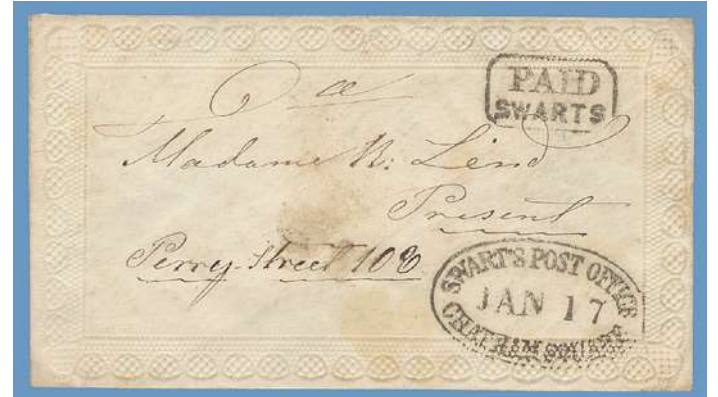 PAID
SWARTS
Madame N: Lind
Present
Perry Street 108
SWART'S POST OFFICE
JAN 17
CHATHAM SQUARE